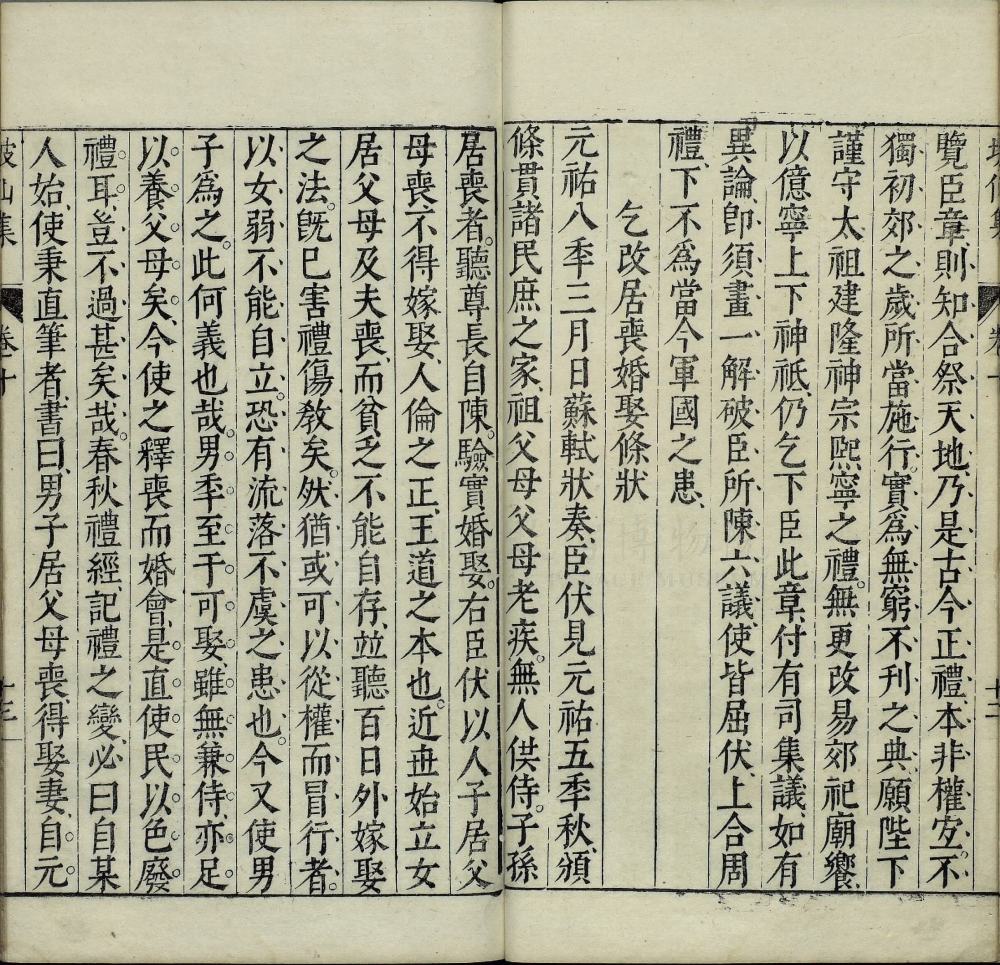 覽臣章則知合祭天地乃是古今正禮本非權宐不
獨初郊之歲所當施行實爲無窮不刋之典願陛下
謹守太祖建隆神宗熙寧之禮無更改易郊祀廟饗
以億寧上下神祇仍乞下臣此章付有司集議如有
異論卽須畫一解破臣所陳六議使皆屈伏上合周
禮下不爲當今軍國之患
乞改居喪婚娶條狀
元祐八秊三月日蘇軾狀奏臣伏見元祐五秊秋頒
條貫諸民庶之家祖父母父母老疾無人供侍子孫
居喪者聽尊長自陳驗實婚娶右臣伏以人子居父
母喪不得嫁娶人倫之正王道之本也近丗始立女
居父母及夫喪而貧乏不能自存竝聽百日外嫁娶
之法旣已害禮傷敎矣然猶或可以從權而冒行者
以女弱不能自立恐有流落不虞之患也今又使男
子爲之此何義也哉男秊至于可娶雖無兼侍亦足
以養父母矣今使之釋喪而婚會是直使民以色廢
禮耳豈不過甚矣哉春秋禮經記禮之變必曰自某
人始使秉直筆者書曰男子居父母喪得娶妻自元
坡仙集 卷十 十三